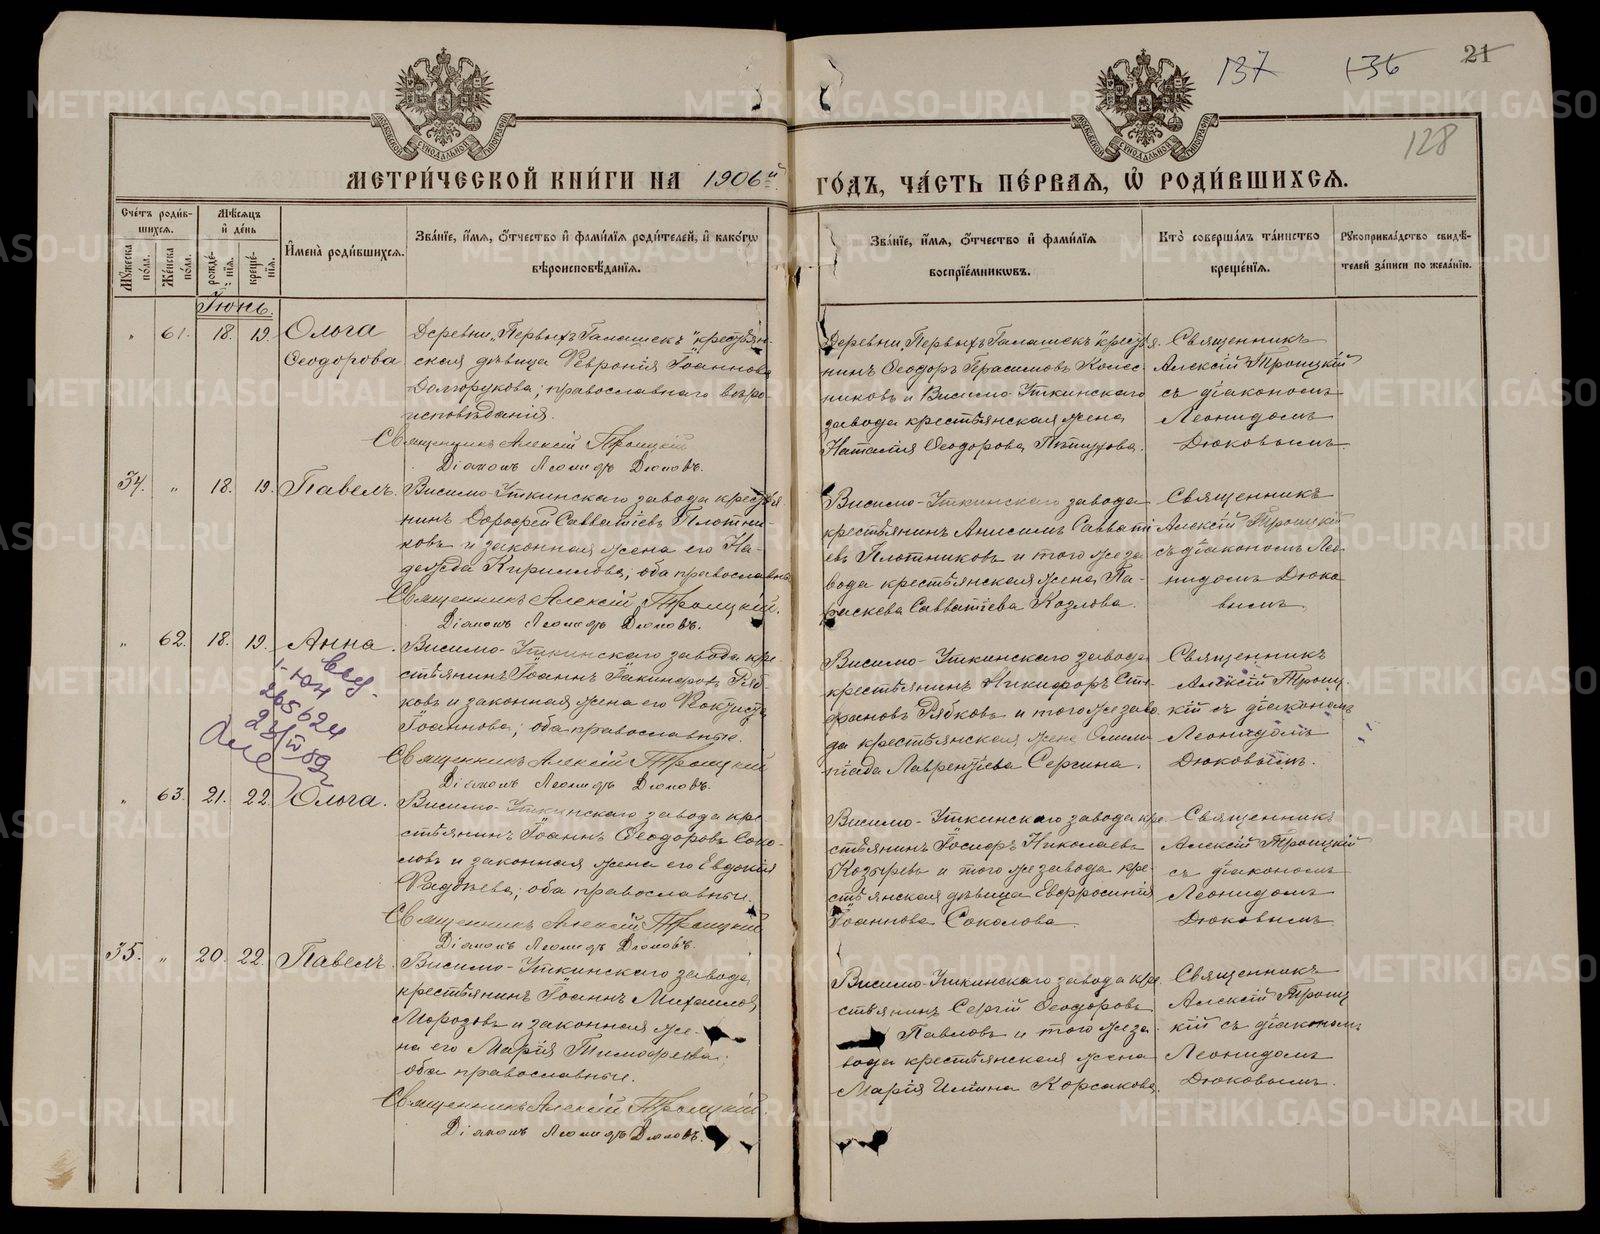 137 136 21
128
МЕТРИ́ЧЕСКОЙ КНИ́ГИ НА 1906й ГО́ДЪ, ЧА́СТЬ ПЕ́РВАЯ, Ѡ РОДИ́ВШИХСЯ.
Сче́тъ роди́вшихся.
Мꙋжеска по́ла.
Же́нска по́ла.
Мѣ́сяцъ и҆ де́нь
рожде́нїѧ.
креще́нїѧ.
И҆мена̀ роди́вшихсѧ.
Зва́нїе, и҆́мѧ, ѻ҆́тчество и҆ фами́лїѧ роди́телей, и҆ како́гѡ
вѣроисповѣ́данїѧ.
Зва́нїе, и҆́мѧ, ѻ҆́тчество и҆ фами́лїѧ
воспрїе́мникѡвъ.
Кто̀ соверша́лъ та́инство
креще́нїѧ.
Рꙋкоприкла́дство свидѣ́-
телей за́писи по жела́нїю.
Іюнь.
„ 61. 18. 19. Ольга
Ѳеодорова
Деревни „Первыхъ Галашекъ" крестьян-
ская дѣвица Феѵронія Іоаннова
Долгорукова; православнаго вѣро-
исповѣданія.
Священникъ Алексій Троицкій
Діаконъ Леонидъ Дюковъ.
Деревни „Первыхъ Галашекъ" крестья-
нинъ Ѳеодоръ Герасимовъ Колес-
никовъ и Висимо-Уткинскаго
завода крестьянская жена
Наталія Ѳеодорова
Священникъ
Алексій Троицкій
съ діакономъ
Леонидомъ
Дюковымъ
34. „ 18. 19. Павелъ.
Висимо-Уткинскаго завода крестья-
нинъ Дорофей Савватіевъ Плотни-
ковъ и законная жена его На-
дежда Кириллова; оба православны
Священникъ Алексій Троицкій.
Діаконъ Леонидъ Дюковъ.
Висимо-Уткинскаго завода
крестьянинъ Анисимъ Савваті
евъ Плотниковъ и того же за
вода крестьянская жена Па-
раскева Савватіева Козлова.
Священникъ
Алексій Троицкій
съ діакономъ Лео-
нидомъ Дюко
вымъ.
„ 62. 18. 19. Анна.
265624
Висимо-Уткинскаго завода кре
стьянинъ Іоаннъ Іакинѳовъ Ряб-
ковъ и законная жена его Ѳеоктиста
Іоаннова; оба православные.
Священникъ Алексій Троицкій
Діаконъ Леонидъ Дюковъ.
Висимо-Уткинскаго завода
крестьянинъ Никифоръ Сте-
фановъ Рябковъ и того же заво
да крестьянская жена Олим-
піада Лаврентіева Сергина.
Священникъ
Алексій Троиц-
кій съ діакономъ
Леонидомъ
Дюковымъ.
„ 63. 21. 22. Ольга.
Висимо-Уткинскаго завода кре
стьянинъ Іоаннъ Ѳеодоровъ Соко-
ловъ и законная жена его Евдокія
Фадѣева; оба православные.
Священникъ Алексій Троицкій
Діаконъ Леонидъ Дюковъ.
Висимо-Уткинскаго завода кре
стьянинъ Іосифъ Николаевъ
Козыревъ и того же завода кре-
стьянская дѣвица Евфросинія
Іоаннова Соколова.
Священникъ
Алексій Троицкій
съ діакономъ
Леонидомъ
Дюковымъ
35. „ 20. 22. Павелъ.
Висимо-Уткинскаго завода
крестьянинъ Іоаннъ Михаиловъ
Морозовъ и законная же-
на его Марія Тимофеева;
оба православные.
Священникъ Алексій Троицкій
Діаконъ Леонидъ Дюковъ.
Висимо-Уткинскаго завода кре
стьянинъ Сергій Ѳеодоровъ
Павловъ и того же за-
вода крестьянская жена
Марія Ильина Корсакова.
Священникъ
Алексій Троиц
кій съ діакономъ
Леонидомъ
Дюковымъ.
METRIKI.GASO-URAL.RU